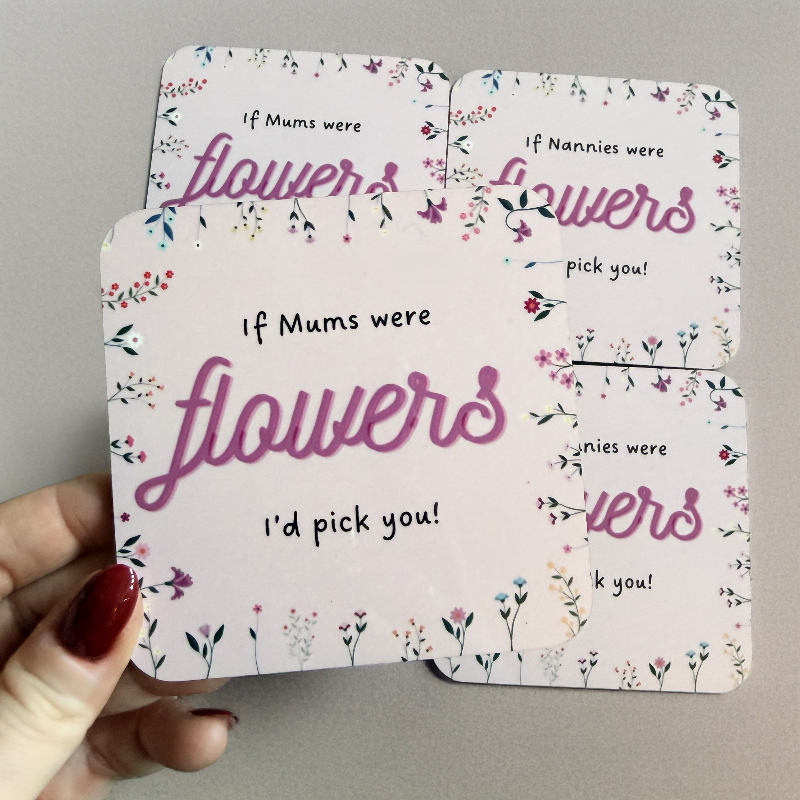 If Mums were
flowers
If Nannies were
flowers
pick you!
If Mums were
flowers
I'd pick you!
nnies were
wers
k you!